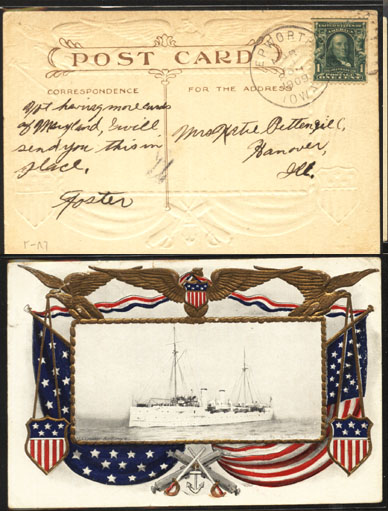 POST CARD
CORRESPONDENCE
FOR THE ADDRESS
EPWORTH
1909
IOWA
1
1
Not having more cards
of Maryland, I will
send you this in
place.
Foster
Mrs Katie Pettengill,
Hanover,
Ill.